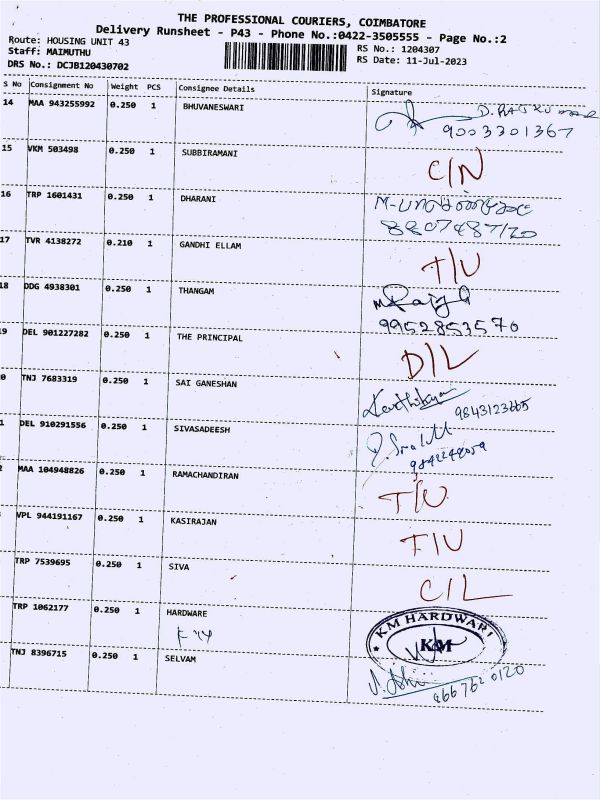 THE PROFESSIONAL COURIERS, COIMBATORE
Delivery Runsheet - P43 - Phone No.:0422-3505555 - Page No.:2
Route: HOUSING UNIT 43
Staff: MAIMUTHU
DRS No.: DCJB120430702
RS No.: 1204307
RS Date: 11-Jul-2023
S No Consignment No Weight PCS Consignee Details Signature
14 MAA 943255992 0.250 1 BHUVANESWARI
9003301367
15 VKM 503498 0.250 1 SUBBIRAMANI C/N
16 TRP 1601431 0.250 1 DHARANI
8807487120
17 TVR 4138272 0.210 1 GANDHI ELLAM T/U
18 DDG 4938301 0.250 1 THANGAM
9952853570
9 DEL 901227282 0.250 1 THE PRINCIPAL D/L
0 TNJ 7683319 0.250 1 SAI GANESHAN
9843123665
1 DEL 910291556 0.250 1 SIVASADEESH
2 MAA 104948826 0.250 1 RAMACHANDIRAN T/U
VPL 944191167 0.250 1 KASIRAJAN T/U
TRP 7539695 0.250 1 SIVA C/L
TRP 1062177 0.250 1 HARDWARE
KM HARDWARE
KM
TNJ 8396715 0.250 1 SELVAM